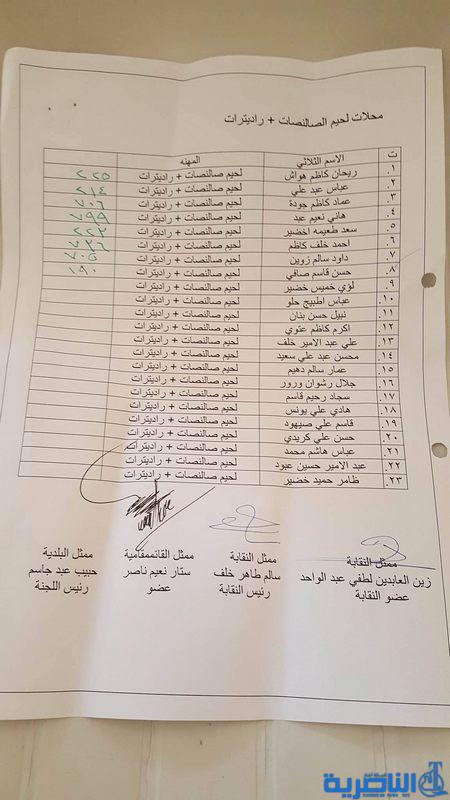 محلات لحيم الصالنصات + راديترات
ت الاسم الثلاثي المهنه
١. ريحان كاظم هواش لحيم صالنصات + راديترات ٢٢٥
٢. عباس عبد علي لحيم صالنصات + راديترات ٢١٤
٣. عماد كاظم جودة لحيم صالنصات + راديترات ٧٠٦
٤. هاني نعيم عبد لحيم صالنصات + راديترات ٧٩٩
٥. سعد طعيمه اخضير لحيم صالنصات + راديترات ٢٢٣
٦. احمد خلف كاظم لحيم صالنصات + راديترات ٧٣٦
٧. داود سالم زوين لحيم صالنصات + راديترات ٧٠٥
٨. حسن قاسم صافي لحيم صالنصات + راديترات ١٩٠
٩. لؤي خميس خضير لحيم صالنصات + راديترات
١٠. عباس اطبيج حلو لحيم صالنصات + راديترات
١١. نبيل حسن بنان لحيم صالنصات + راديترات
١٢. اكرم كاظم عتوي لحيم صالنصات + راديترات
١٣. علي عبد الامير خلف لحيم صالنصات + راديترات
١٤. محسن عبد علي سعيد لحيم صالنصات + راديترات
١٥. عمار سالم دهيم لحيم صالنصات + راديترات
١٦. جلال رشوان ورور لحيم صالنصات + راديترات
١٧. سجاد رحيم قاسم لحيم صالنصات + راديترات
١٨. هادي علي يونس لحيم صالنصات + راديترات
١٩. قاسم علي صيهود لحيم صالنصات + راديترات
٢٠. حسن علي كريدي لحيم صالنصات + راديترات
٢١. عباس هاشم محمد لحيم صالنصات + راديترات
٢٢. عبد الامير حسين عبود لحيم صالنصات + راديترات
٢٣. ظامر حميد خضير لحيم صالنصات + راديترات
ممثل النقابة ممثل النقابة ممثل القائممقامية ممثل البلدية
زين العابدين لطفي عبد الواحد سالم طاهر خلف ستار نعيم ناصر حبيب عبد جاسم
عضو النقابة رئيس النقابة عضو رئيس اللجنة
الناصرية